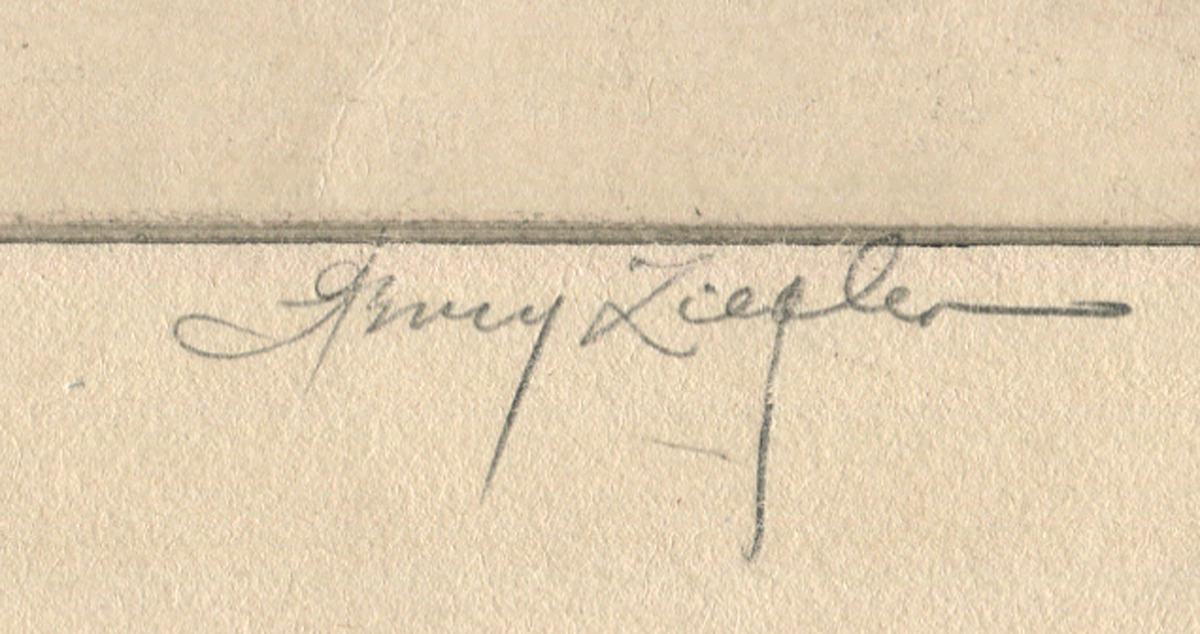 Henry Ziegler